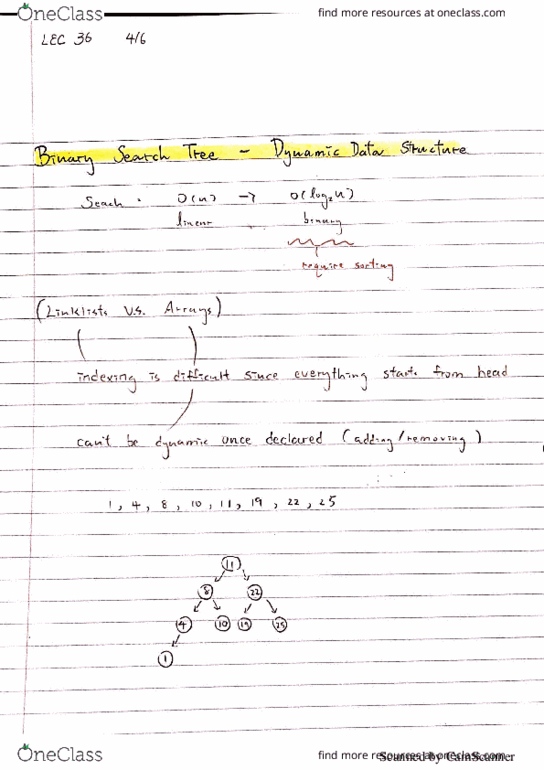 OneClass
find more resources at oneclass.com
LEC 36 4/6
Binary Search Tree - Dynamic Data Structure
Seach. O(n) → O(log₂n)
linear binary
require sorting
(Linklists V.S. Arrays)
indexing is difficult since everything starts from head
can't be dynamic once declared (adding/removing)
1, 4, 8, 10, 11, 19, 22, 25
11
8 22
4 10 19 25
1
OneClass
find more resources at oneclass.com
Scanned by CamScanner